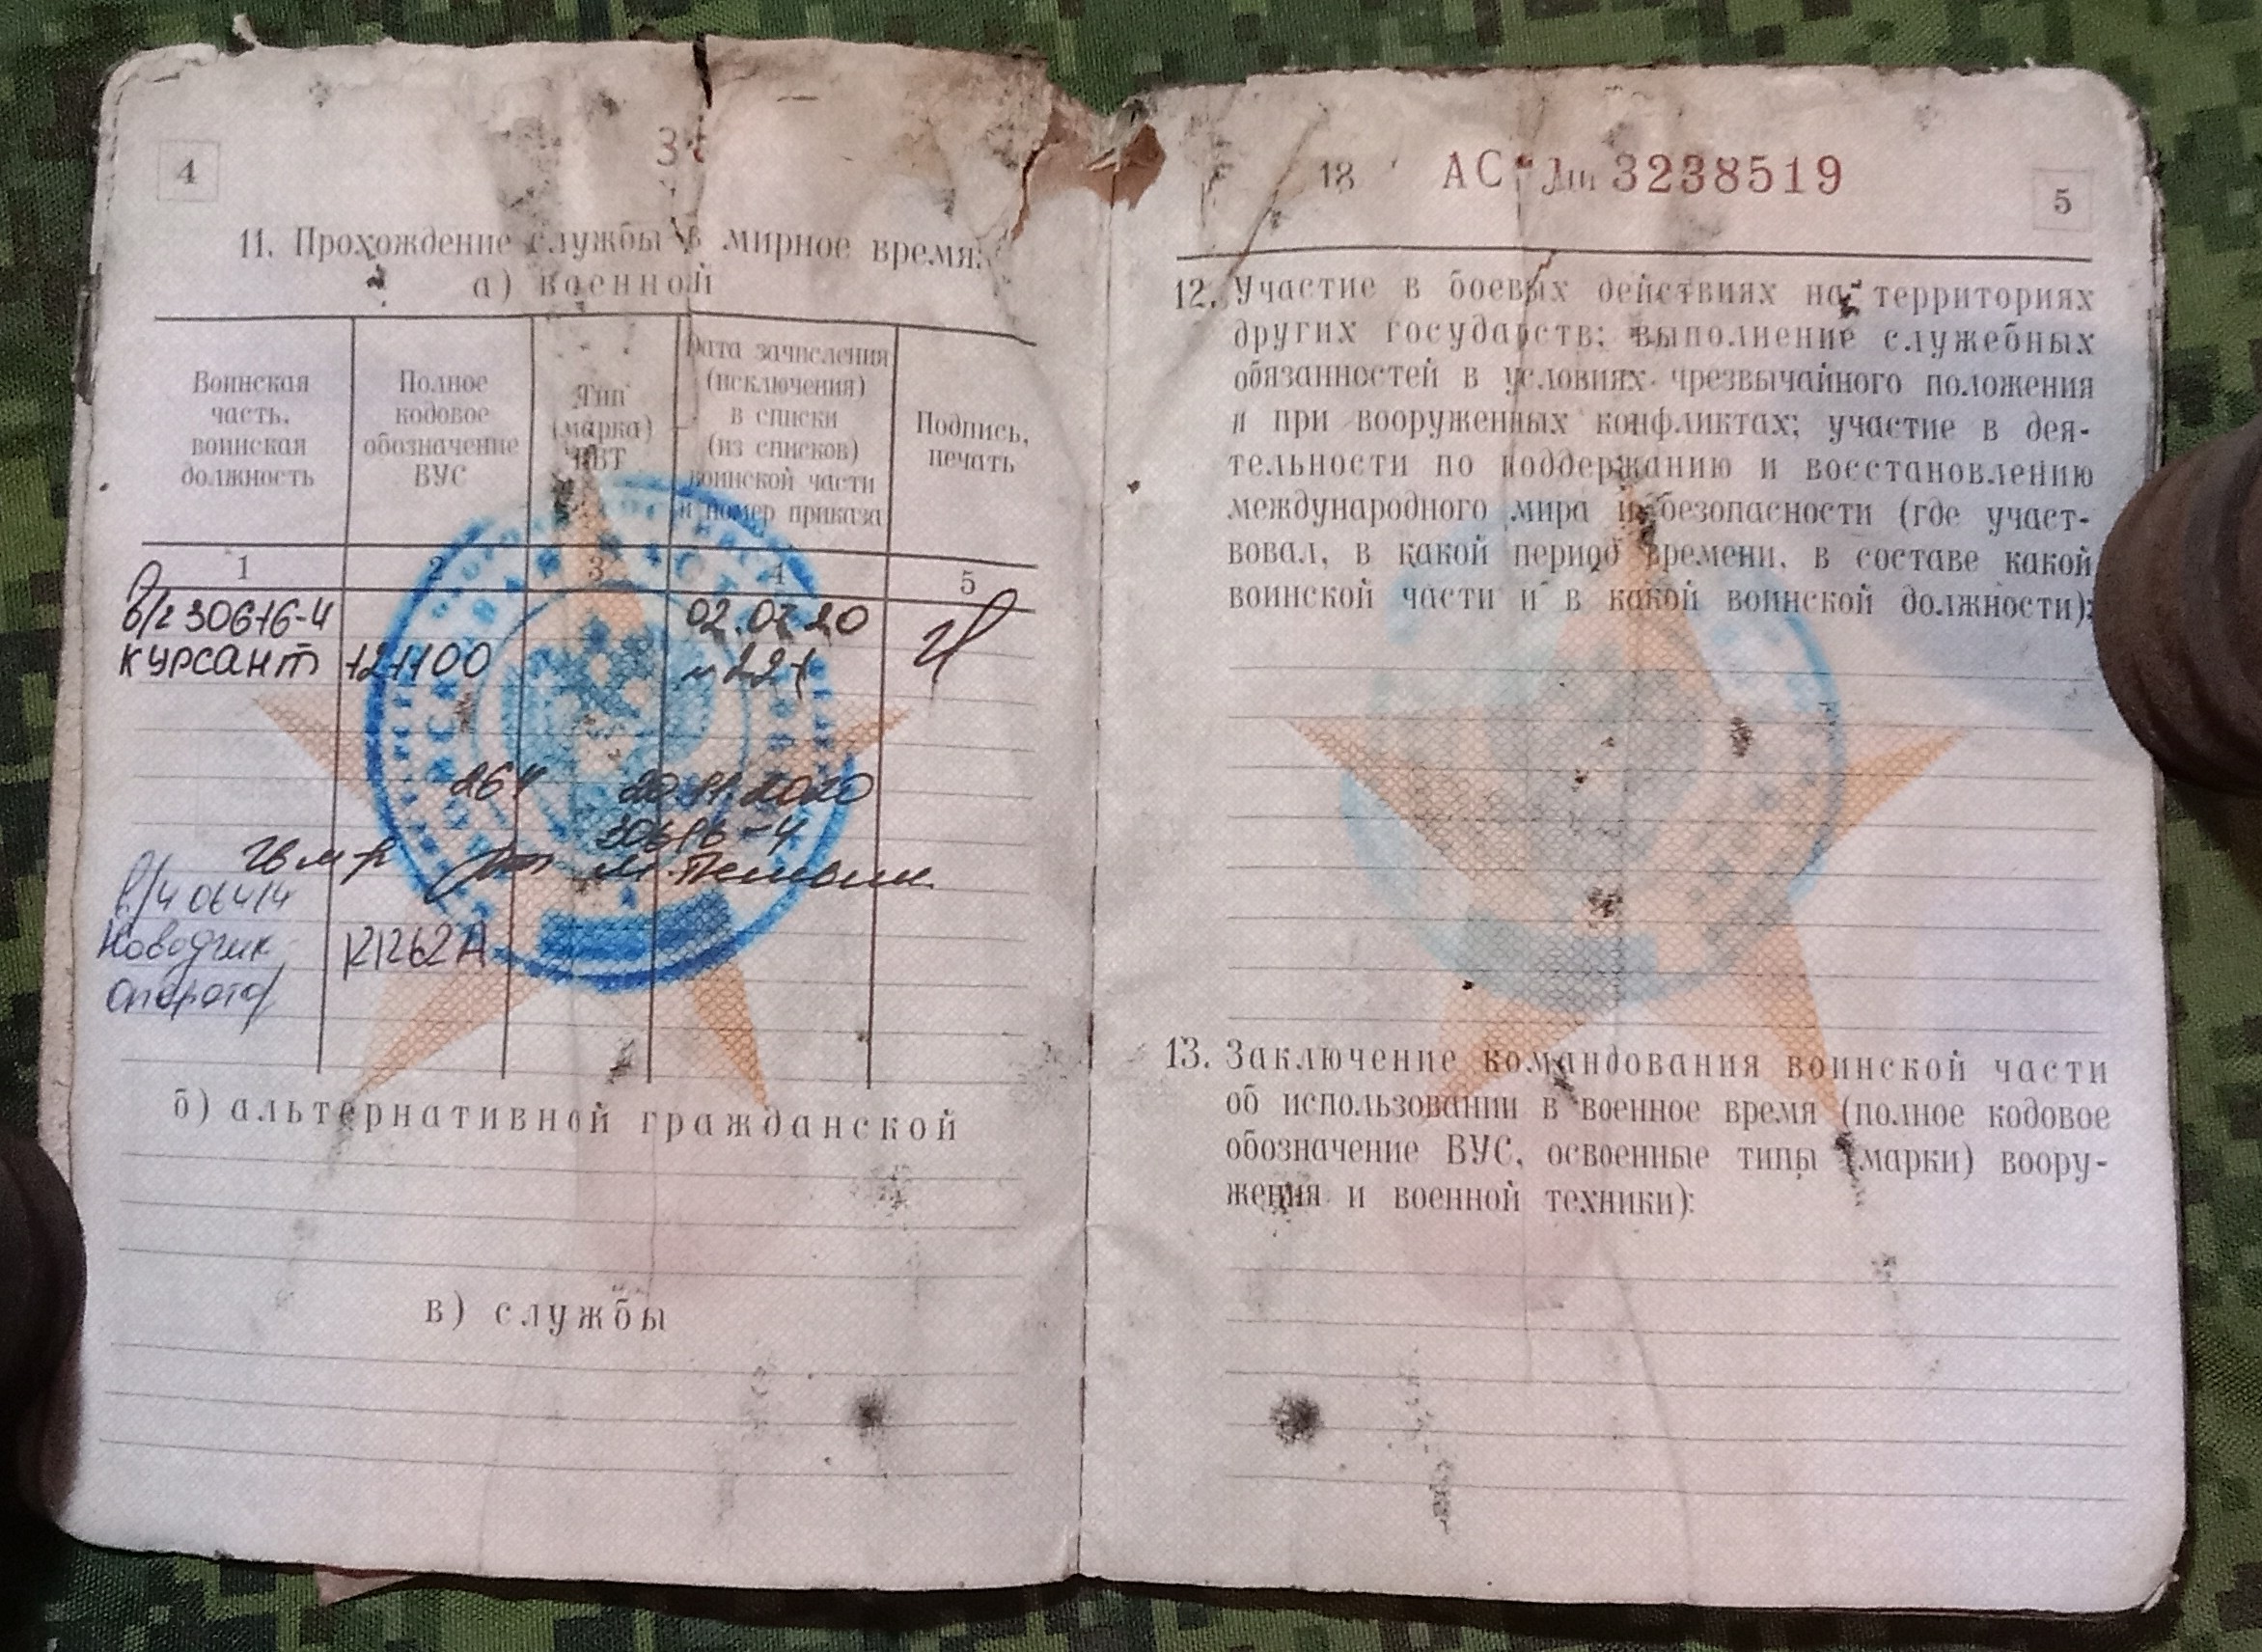 4
11. Прохождение службы в мирное время:
а) военной
Воинская часть, воинская должность
Полное кодовое обозначение ВУС
Тип (марка) ВВТ
Дата зачисления (исключения) в списки (из списков) воинской части и номер приказа
Подпись, печать
1 2 3 4 5
30616-4 02.07.20
курсант 121100
20.11.2020
30616-4
в/ч 06414
121262А
б) альтернативной гражданской
в) службы
АС № 3238519
5
12. Участие в боевых действиях на территориях
других государств; выполнение служебных
обязанностей в условиях чрезвычайного положения
и при вооруженных конфликтах; участие в дея-
тельности по поддержанию и восстановлению
международного мира и безопасности (где участ-
вовал, в какой период времени, в составе какой
воинской части и в какой воинской должности):
13. Заключение командования воинской части
об использовании в военное время (полное кодовое
обозначение ВУС, освоенные типы (марки) воору-
жения и военной техники):